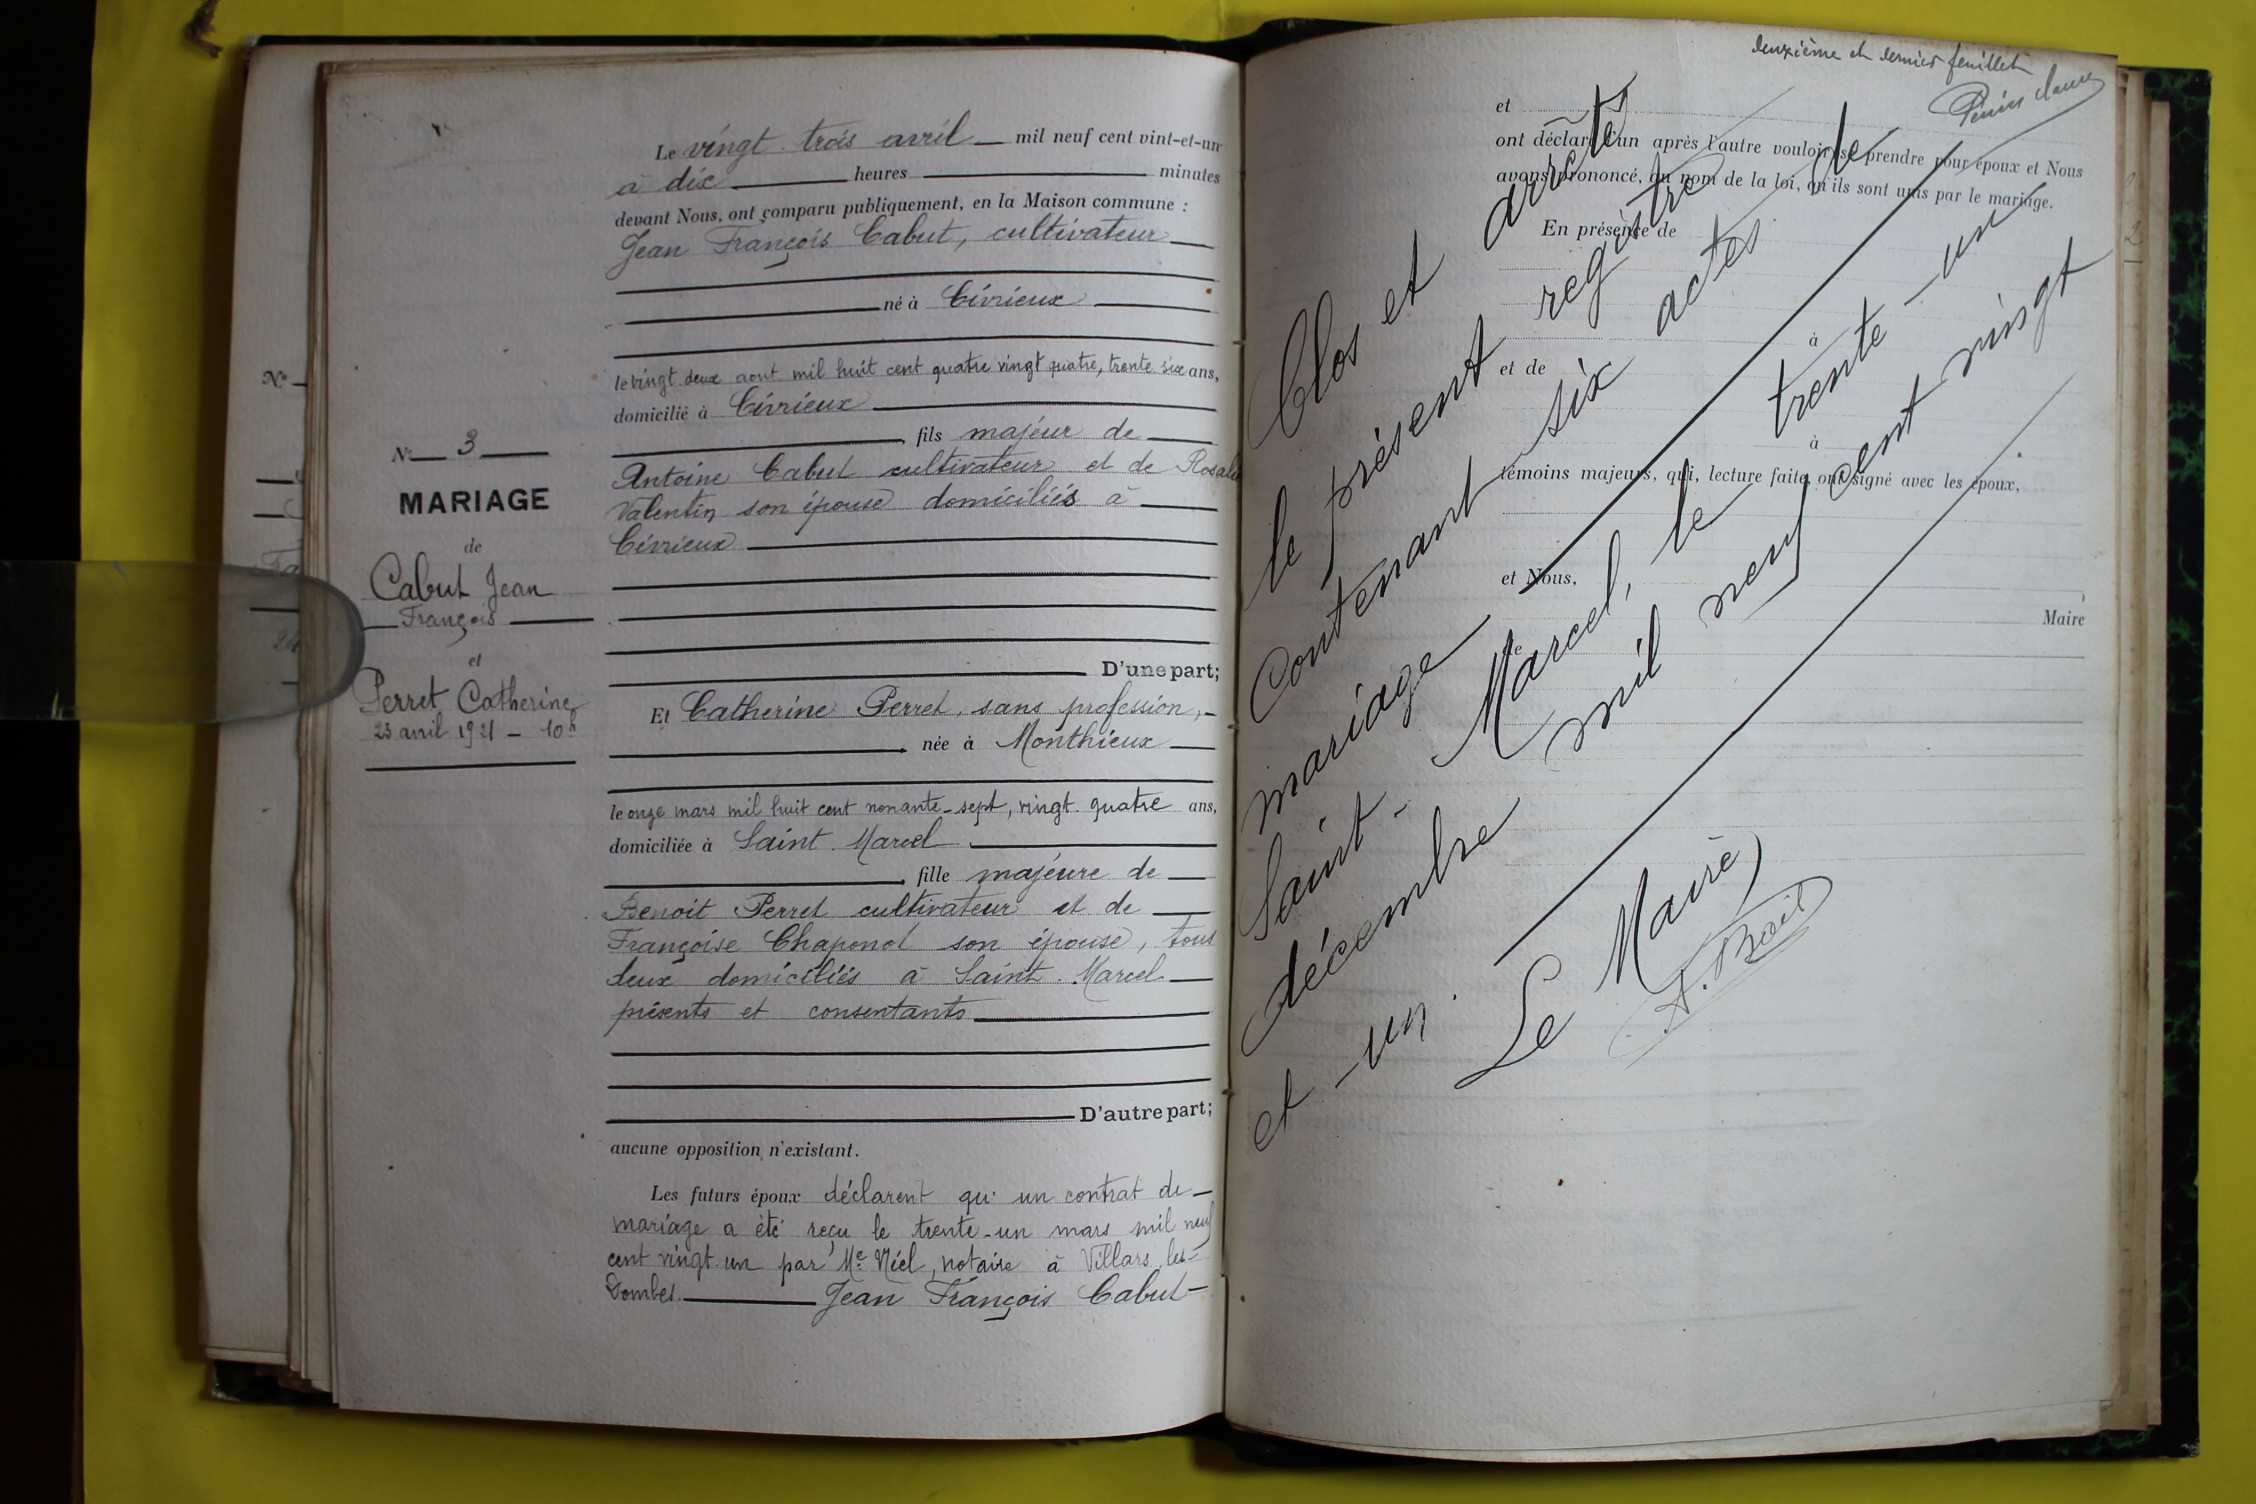 Le vingt trois avril mil neuf cent vint-et-un
à dix heures minutes
devant Nous, ont comparu publiquement, en la Maison commune :
Jean François Cabut, cultivateur
né à Civrieux
le vingt deux aout mil huit cent quatre vingt quatre, trente six ans,
domicilié à Civrieux
fils majeur de
Antoine Cabut cultivateur et de Rosalie
Valentin son épouse domiciliés à
Civrieux
D'une part;
Et Catherine Perret, sans profession,
née à Monthieux
le onze mars mil huit cent nonante-sept, vingt quatre ans,
domiciliée à Saint Marcel
fille majeure de
Benoit Perret cultivateur et de
Françoise Chaponot son épouse, tous
deux domiciliés à Saint Marcel
présents et consentants
D'autre part;
aucune opposition n'existant.
Les futurs époux déclarent qu'un contrat de
mariage a été reçu le trente-un mars mil neuf
cent vingt un par Me Niel, notaire à Villars les-
Dombes. Jean François Cabut
N° 3
MARIAGE
de
Cabut Jean
François
et
Perret Catherine
23 avril 1921 - 10h
N°
deuxième et dernier feuillet
et
ont déclaré l'un après l'autre vouloir se prendre pour époux et Nous
avons prononcé, au nom de la loi, qu'ils sont unis par le mariage.
En présence de
à
et de
à
témoins majeurs, qui, lecture faite, ont signé avec les époux,
et Nous,
Maire
de
Clos et arrêté
le présent registre
Contenant six actes de
mariage
Saint-Marcel, le trente-un
décembre mil neuf cent vingt
et-un.
Le Maire,
A. Bail